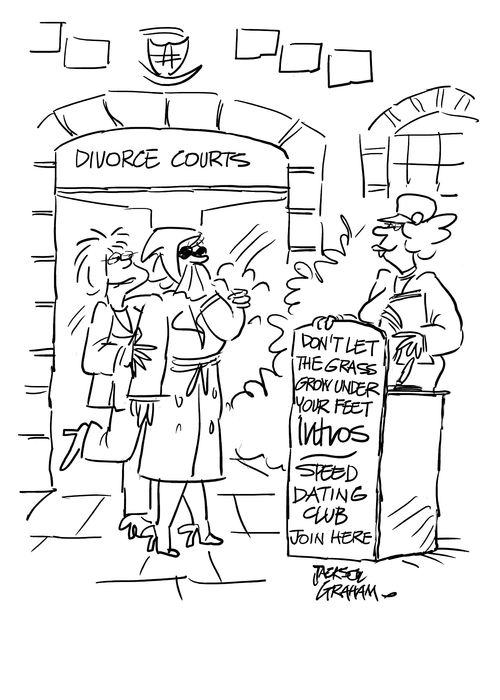 DIVORCE COURTS
DON'T LET
THE GRASS
GROW UNDER
YOUR FEET
Intros
SPEED
DATING
CLUB
JOIN HERE
JACKSON
GRAHAM